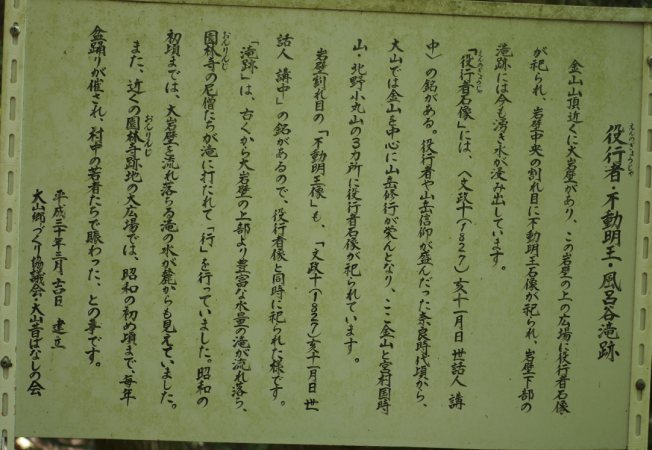 えんのぎょうじゃ
役行者・不動明王・風呂谷滝跡
金山山頂近くに大岩壁があり、この岩壁の上の広場に役行者石像
が祀られ、岩壁中央の割れ目に不動明王石像が祀られ、岩壁下部の
滝跡には今も湧き水が浸み出しています。
えんのぎょうじゃ
「役行者石像」には、〈文政十(1827)亥十一月日 世話人 講
中〉の銘がある。役行者や山岳信仰が盛んだった奈良時代頃から、
大山では金山を中心に山岳修行が栄んとなり、ここ金山と宮村国時
山・北野小丸山の3カ所に役行者石像が祀られています。
岩壁割れ目の「不動明王像」も、「文政十(1827)亥十一月日 世
話人 講中」の銘があるので、役行者像と同時に祀られた様です。
「滝跡」は、古くから大岩壁の上部より豊富な水量の滝が流れ落ち、
おんりんじ
園林寺の尼僧たちが滝に打たれて「行」を行っていました。昭和の
初頃までは、大岩壁を流れ落ちる滝の水が麓からも見えていました。
おんりんじ
また、近くの園林寺跡地の大広場では、昭和の初め頃まで、毎年
盆踊りが催され、村中の若者たちで賑わった、との事です。
平成三十年三月吉日 建立
大山郷づくり協議会・大山昔ばなしの会